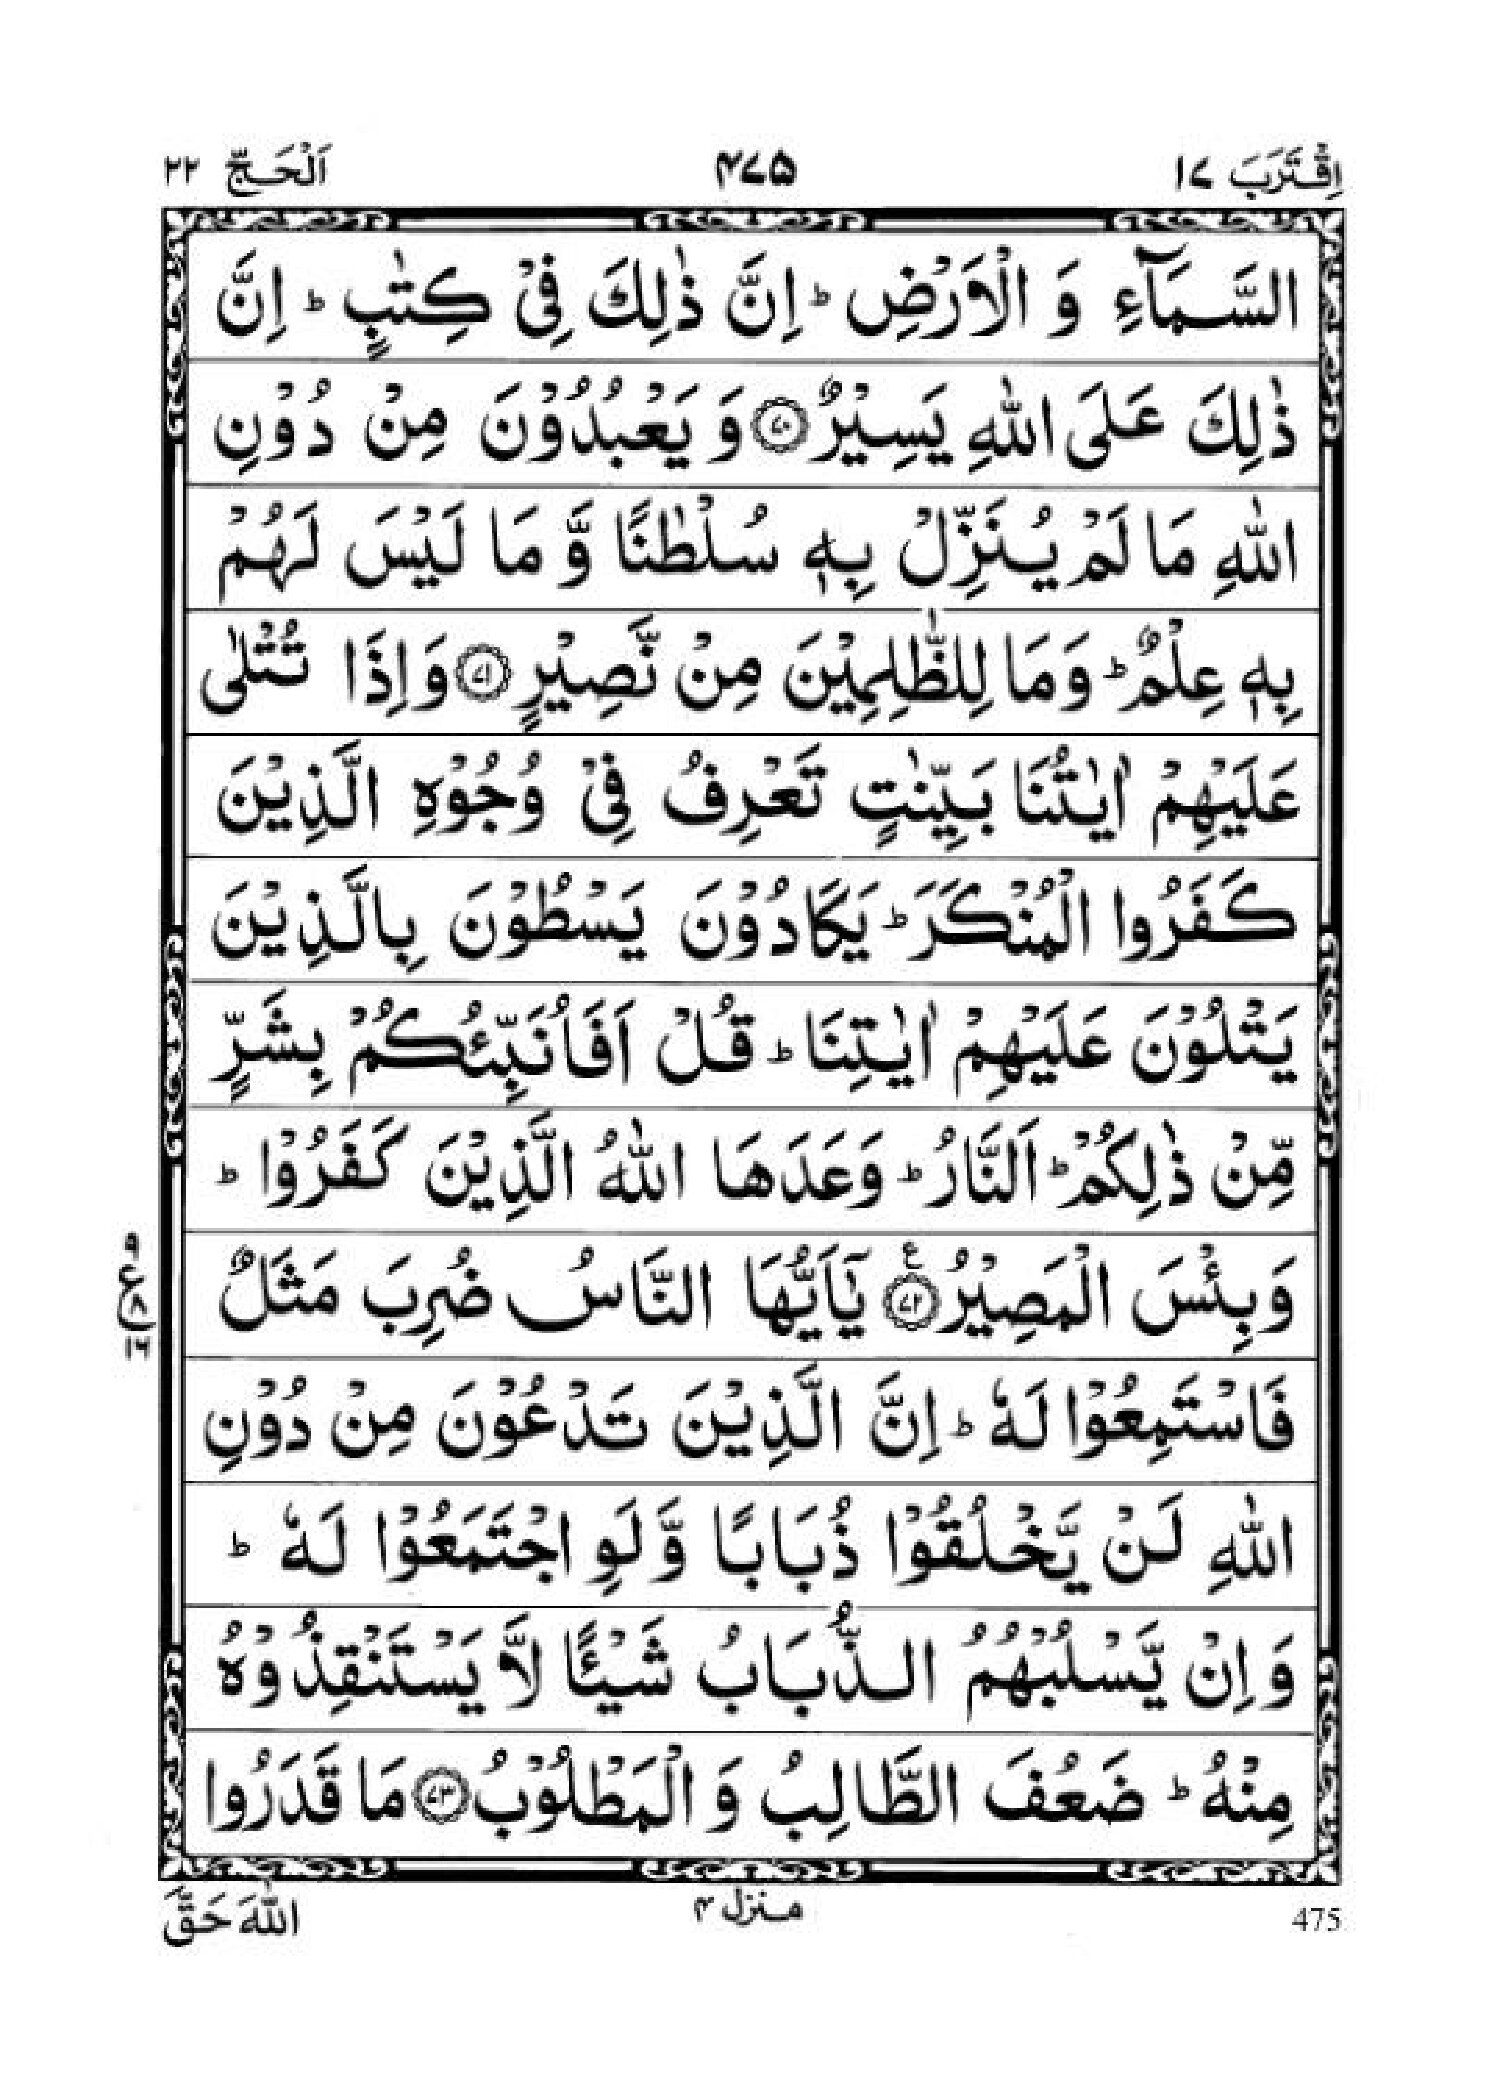 اِقْتَرَبَ ١٧ ۴۷۵ اَلْحَجّ ٢٢
السَّمَآءِ وَ الْاَرْضِ ؕ اِنَّ ذٰلِكَ فِیْ كِتٰبٍ ؕ اِنَّ
ذٰلِكَ عَلَی اللّٰهِ یَسِیْرٌ ۝۷۰ وَ یَعْبُدُوْنَ مِنْ دُوْنِ
اللّٰهِ مَا لَمْ یُنَزِّلْ بِهٖ سُلْطٰنًا وَّ مَا لَیْسَ لَهُمْ
بِهٖ عِلْمٌ ؕ وَمَا لِلظّٰلِمِیْنَ مِنْ نَّصِیْرٍ ۝۷۱ وَاِذَا تُتْلٰی
عَلَیْهِمْ اٰیٰتُنَا بَیِّنٰتٍ تَعْرِفُ فِیْ وُجُوْهِ الَّذِیْنَ
كَفَرُوا الْمُنْكَرَ ؕ یَكَادُوْنَ یَسْطُوْنَ بِالَّذِیْنَ
یَتْلُوْنَ عَلَیْهِمْ اٰیٰتِنَا ؕ قُلْ اَفَاُنَبِّئُكُمْ بِشَرٍّ
مِّنْ ذٰلِكُمْ ؕ اَلنَّارُ ؕ وَعَدَهَا اللّٰهُ الَّذِیْنَ كَفَرُوْا ؕ
وَبِئْسَ الْمَصِیْرُ ۝۷۲ ع یٰۤاَیُّهَا النَّاسُ ضُرِبَ مَثَلٌ
فَاسْتَمِعُوْا لَهٗ ؕ اِنَّ الَّذِیْنَ تَدْعُوْنَ مِنْ دُوْنِ
اللّٰهِ لَنْ یَّخْلُقُوْا ذُبَابًا وَّلَوِ اجْتَمَعُوْا لَهٗ ؕ
وَاِنْ یَّسْلُبْهُمُ الذُّبَابُ شَیْـًٔا لَّا یَسْتَنْقِذُوْهُ
مِنْهُ ؕ ضَعُفَ الطَّالِبُ وَ الْمَطْلُوْبُ ۝۷۳ مَا قَدَرُوا
475 منزل ۴ اللّٰهَ حَقَّ